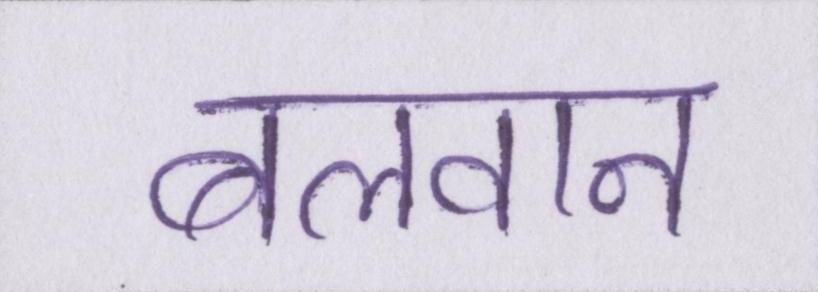 बलवान